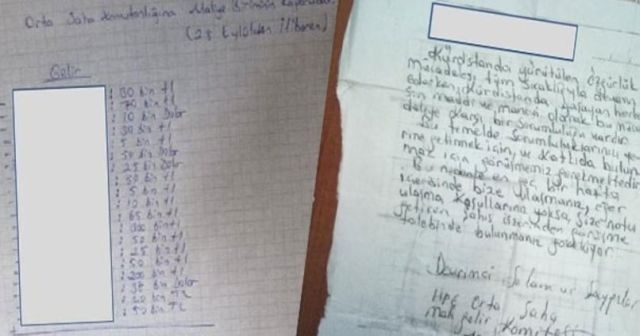 Orta Saha Komutanlığına Maliye Biriminin Raporudur.
(23 Eylülden İtibaren)
Gelir
: 30 bin tl
: 70 bin tl
: 10 bin Dolar
: 30 bin tl
: 5 bin tl
: 50 bin Dolar
: 25 bin Dolar
: 30 bin tl
: 5 bin tl
: 10 bin tl
: 65 bin tl
: 100 bin tl
: 50 bin tl
: 25 bin tl
: 50 bin tl
: 200 bin tl
: 35 bin Dolar
: 60 bin TL
: 50 bin TL
Kürdistanda yürütülen özgürlük
mücadelesi tüm sıcaklığıyla devam
ederken, Kürdistanda yaşayan her
için maddi ve manevi olarak bu
karşı bir sorumluluğu vardır.
Bu temelde sorumluluklarınızı ye-
rine getirmek için, ve katkıda bulun-
mak için görülmeniz gerekmektedir
Bu nedenle en geç bir hafta
içerisinde bize ulaşmanız, eğer
ulaşma koşullarınız yoksa, size notu
getiren şahıs üzerinden görüşme
talebinde bulunmanız gerekiyor.
Devrimci Selam ve Saygılar
HPG Orta Saha
Komitesi